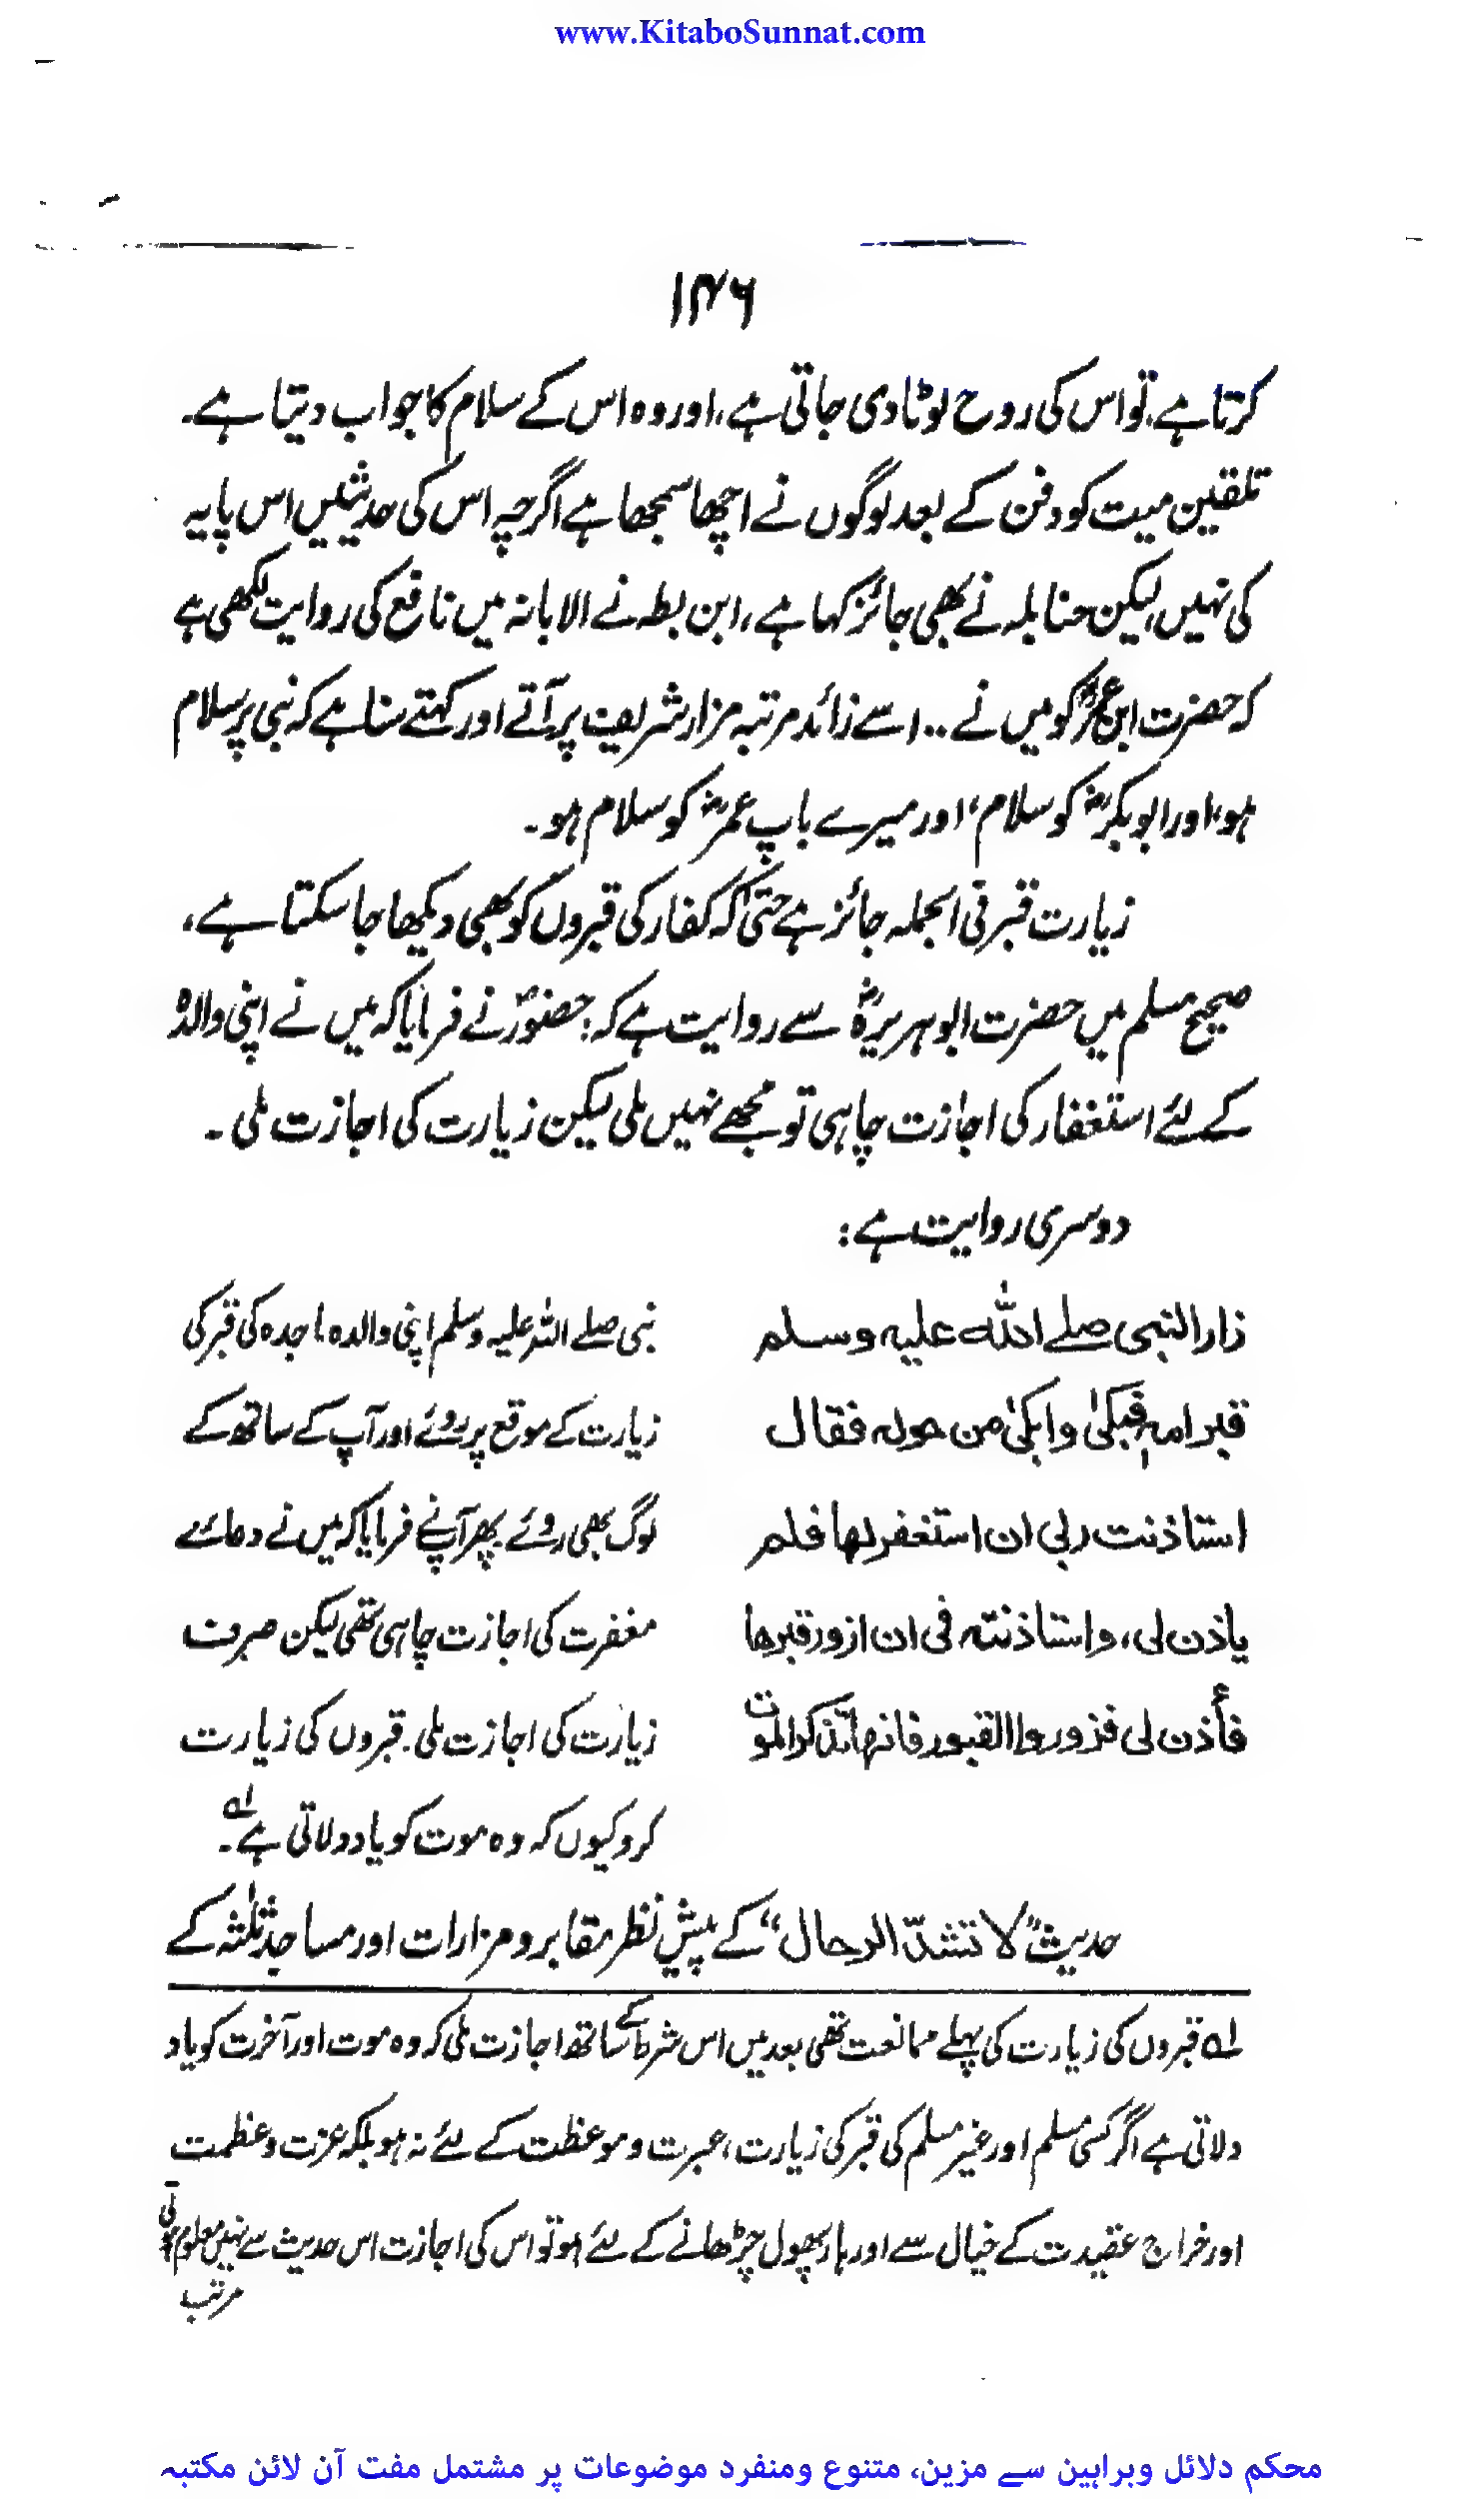 www.KitaboSunnat.com
۱۴۶
کرتا ہے، تو اس کی روح لوٹا دی جاتی ہے، اور وہ اس کے سلام کا جواب دیتا ہے۔
تلقین میت کو دفن کے بعد لوگوں نے اچھا سمجھا ہے اگرچہ اس کی حدیثیں اس پایہ
کی نہیں، لیکن حنابلہ نے بھی جائز کہا ہے، ابن بطہ نے الابانہ میں نافع کی روایت لکھی ہے
کہ حضرت ابن عمرؓ کو میں نے ۱۰۰ سے زائد مرتبہ مزار شریف پر آتے اور کہتے سنا ہے کہ نبی پر سلام
ہو، اور ابوبکرؓ کو سلام، اور میرے باپ عمرؓ کو سلام ہو۔
زیارت قبر فی الجملہ جائز ہے حتیٰ کہ کفار کی قبروں کو بھی دیکھا جا سکتا ہے،
صحیح مسلم میں حضرت ابوہریرہؓ سے روایت ہے کہ: حضورؐ نے فرمایا کہ میں نے اپنی والدہ
کے لئے استغفار کی اجازت چاہی تو مجھے نہیں ملی لیکن زیارت کی اجازت ملی۔
دوسری روایت ہے:
زار النبی صلے اللہ علیہ وسلم
قبر امہٖ فبکیٰ وابکیٰ من حولہ فقال
استاذنت ربی ان استغفر لھا فلم
یاذن لی، واستاذنتہ فی ان ازور قبرھا
فأذن لی فزوروا القبور فانھا تذکر الموت
نبی صلے اللہ علیہ وسلم اپنی والدہ ماجدہ کی قبر کی
زیارت کے موقع پر روئے اور آپ کے ساتھ کے
لوگ بھی روئے پھر آپنے فرمایا کہ میں نے دعائے
مغفرت کی اجازت چاہی تھی لیکن صرف
زیارت کی اجازت ملی۔ قبروں کی زیارت
کرو کیوں کہ وہ موت کو یاد دلاتی ہے۔ لہ
حدیث "لا تشدّ الرحال" کے پیش نظر مقابر و مزارات اور مساجد ثلٰثہ کے
لہ قبروں کی زیارت کی پہلے ممانعت تھی بعد میں اس شرط کے ساتھ اجازت ملی کہ وہ موت اور آخرت کو یاد
دلاتی ہے اگر کسی مسلم اور غیر مسلم کی قبر کی زیارت، عبرت و موعظت کے لئے نہ ہو بلکہ عزت و عظمت
اور خراج عقیدت کے خیال سے اور ہار پھول چڑھانے کے لئے ہو تو اس کی اجازت اس حدیث سے نہیں معلوم ہوتی
مرتب
محکم دلائل وبراہین سے مزین، متنوع ومنفرد موضوعات پر مشتمل مفت آن لائن مکتبہ